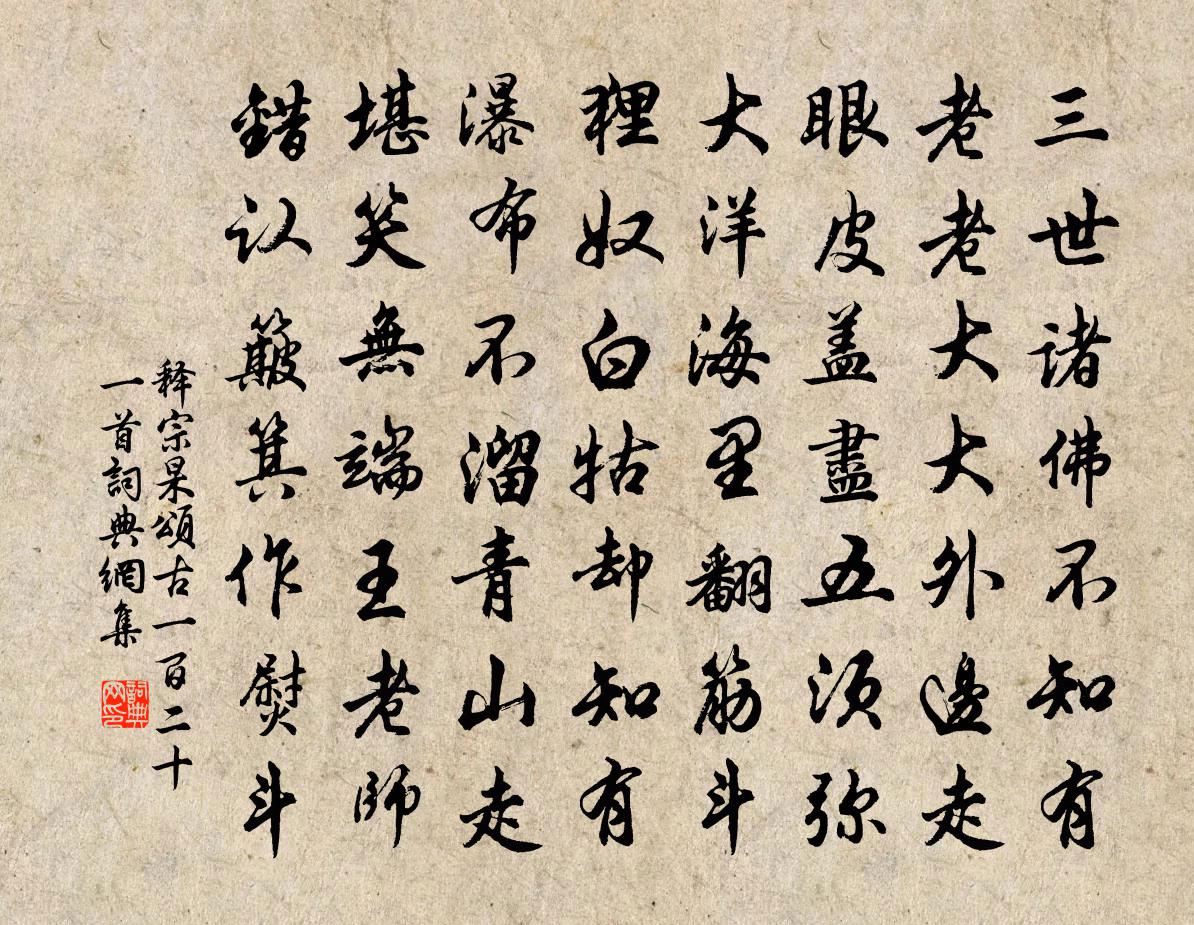 三世诸佛不知有
老老大大外邊走
眼皮盖盡五须弥
大洋海里翻筋斗
狸奴白牯却知有
瀑布不溜青山走
堪笑無端王老師
錯认簸箕作熨斗
释宗杲頌古一百二十
一首詞典網集
詞典网印